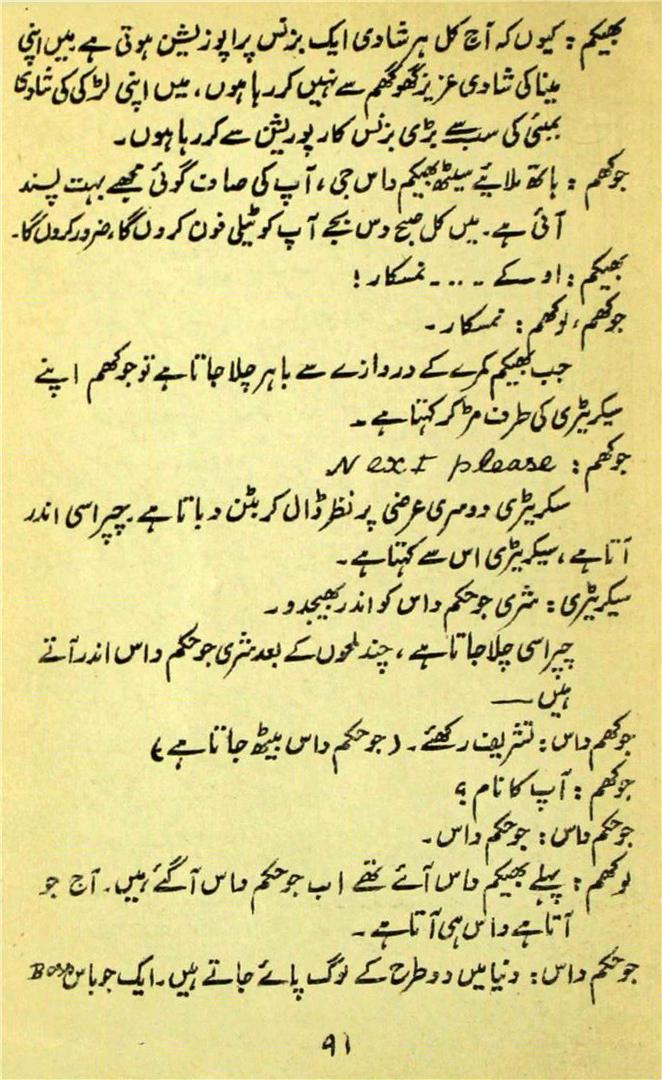 بھیکم : کیوں کہ آج کل ہر شادی ایک بزنس پراپوزیشن ہوتی ہے میں اپنی
مینا کی شادی عزیز گھوکھم سے نہیں کر رہا ہوں، میں اپنی لڑکی کی شادی
بمبئی کی سب سے بڑی بزنس کارپوریشن سے کر رہا ہوں۔
جوکھم : ہاتھ ملائیے سیٹھ بھیکم داس جی، آپ کی صاف گوئی مجھے بہت پسند
آئی ہے۔ میں کل صبح دس بجے آپ کو ٹیلی فون کروں گا، ضرور کروں گا۔
بھیکم : او کے ۔۔۔۔ نمسکار !
جوکھم، لوکھم : نمسکار ۔
جب بھیکم کمرے کے دروازے سے باہر چلا جاتا ہے تو جوکھم اپنے
سیکریٹری کی طرف مڑ کر کہتا ہے ۔
جوکھم : Next please
سکریٹری دوسری عرضی پر نظر ڈال کر بٹن دباتا ہے ۔ چپراسی اندر
آتا ہے ، سیکریٹری اس سے کہتا ہے ۔
سیکریٹری : شری جوحکم داس کو اندر بھیجدو ۔
چپراسی چلا جاتا ہے ، چند لمحوں کے بعد شری جوحکم داس اندر آتے
ہیں —
جوکھم داس : تشریف رکھئے ۔ (جوحکم داس بیٹھ جاتا ہے)
جوکھم : آپ کا نام ؟
جوحکم داس : جوحکم داس ۔
لوکھم : پہلے بھیکم داس آئے تھے اب جوحکم داس آ گئے ہیں ۔ آج جو
آتا ہے داس ہی آتا ہے ۔
جوحکم داس : دنیا میں دو طرح کے لوگ پائے جاتے ہیں ۔ ایک جو باس
۹۱